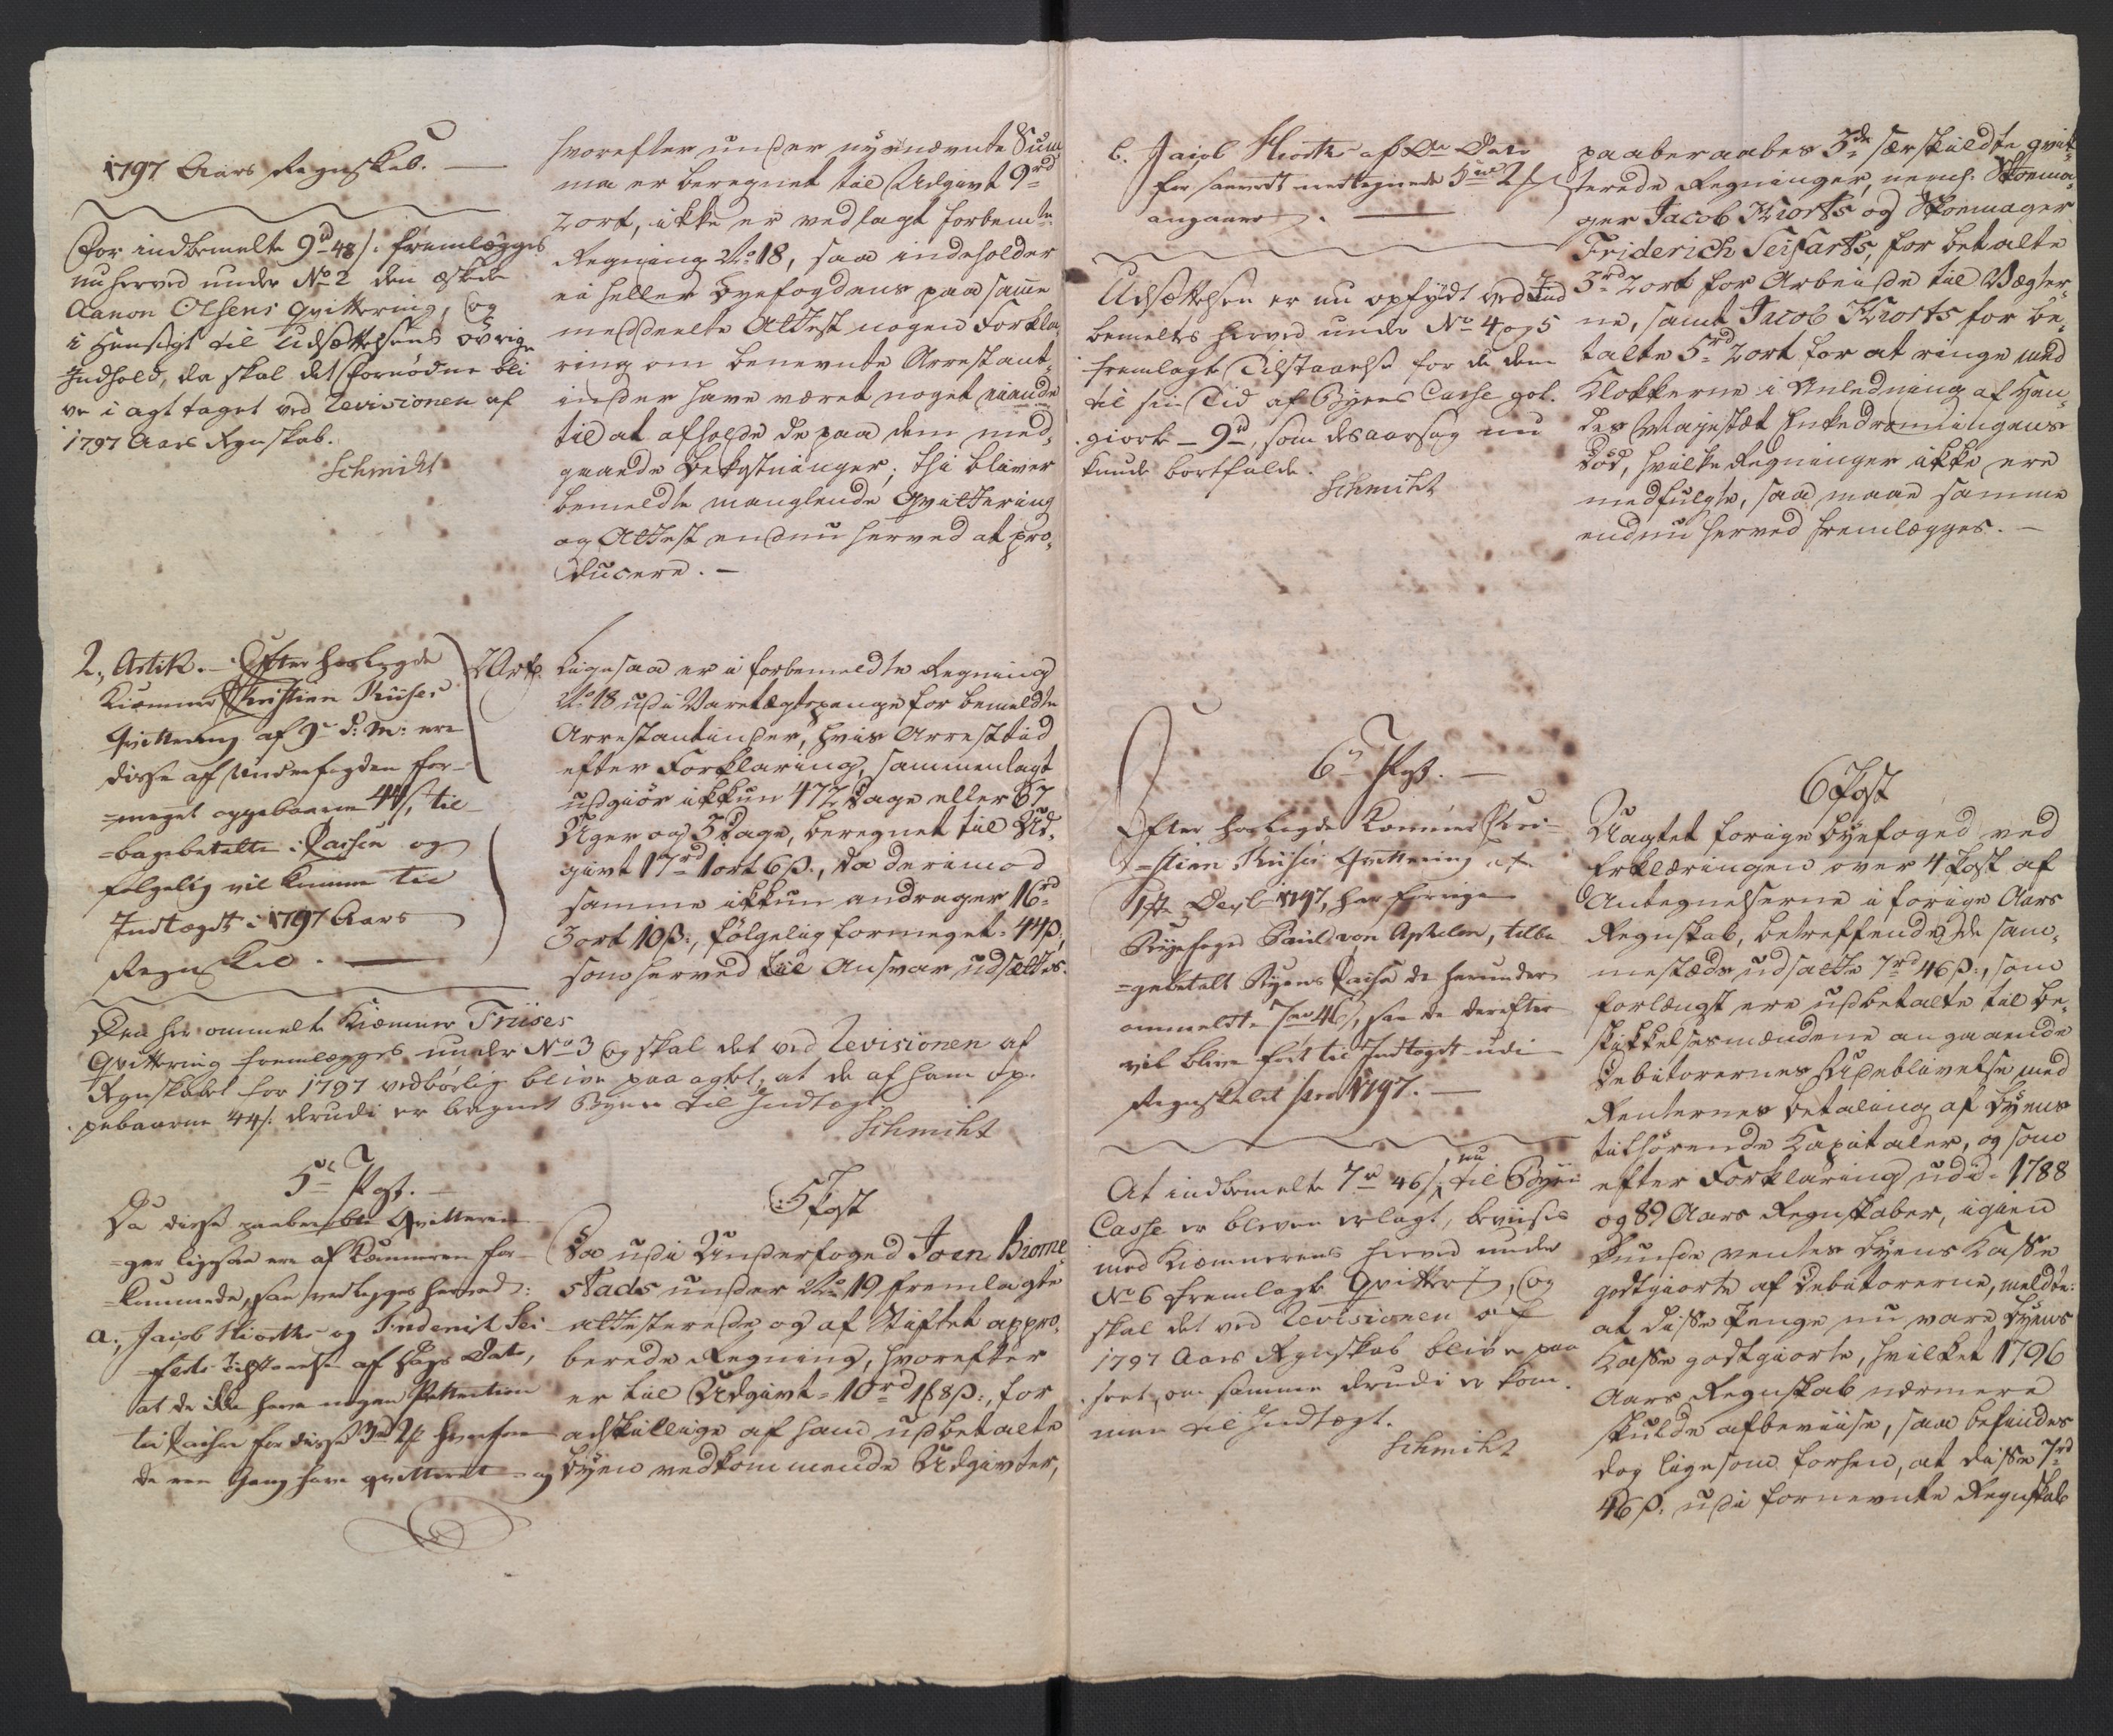 1797 Aars Regnskab. —
For indbemelte 9rd 48 s. fremlægges
nu herved under No 2 den æskede
Aanon Olsens qvittering, og
i Hensigt til Udsættelsens øvrige
Indhold, da skal det fornødne bli
ve i agt taget ved Revisionen af
1797 Aars Regnskab.
Schmidt
2, Artik. — Efter hoslagde
Kiemner Christian Friises
Qvittering af 9de d: M: ere
disse af Underfogden for-
=meget oppebaarne 44 s, til-
=bagebetalte i Cassen og
følgelig vil komme til
Indtægt i 1797 Aars
Regnskab. —
Den her ommelte Kiæmner Friises
Qvittering fremlægges under No 3 og skal det ved Revisionen af
Regnskabet for 1797 vedbørlig blive paa agtet, at de af ham op-
pebaarne 44 s. derudi er beregnet Byen til Indtægt
Schmidt
5te Post. —
Da disse paaberaabte Qvitterin-
=ger ligesaa ere af Kæmneren for-
=kommede, saa vedlegges herved:
a; Jacob Kiorts og Friderich Sei-
=farts Tilstaaelse af Dags Dato,
at de ikke have nogen Prætention
til Cassen for disse 3rd 2 ort hvorfore
de een Gang have qvitteret — og
hvorefter under nysnævnte Sum
ma er beregnet til Udgivt 9rd
2 ort, ikke er vedlagt forbemte
Regning No 18, saa indeholder
ei heller Byefogdens paa samme
meddeelte Attest nogen Forkla,
ring om benevnte Arrestant,
inder have været noget eiende
til at afholde de paa dem med,
gaaede Bekostninger; thi bliver
bemeldte manglende Qvittering
og Attest endnu herved at pro,
ducere. —
2 Art. Ligesaa er i forbemeldte Regning
No 18 udi Varetægtspenge for bemeldte
Arrestantinder, hvis Arresttid
efter Forklaring, sammenlagt
udgiør ikkun 472 Dage eller 67
Uger og 3 Dage, beregnet til Ud,
givt 17rd 1 ort 6 s., da derimod
samme ikkun andrager 16rd
3 ort 10 s., følgelig formeget = 44 s,
som herved til Ansvar udsættes.
5 Post
Da udi Underfoged Joen Biorne
stads under No 19 fremlagte
attesterede og af Stiftet appro,
berede Regning, hvorefter
er til Udgivt = 10rd 1 ort 8 s., for
adskillige af ham udbetalte
Byen vedkommende Udgivter,
b. Jacob Kiorts af Do Dato
for saavidt vedtegnede 5rd 2 ort
angaaer. —
Udsættelsen er nu opfyldt ved Ind
bemeltes herved under No 4 og 5
fremlagte Tilstaaelse for de dem
til sin Tid af Byens Casse got-
giorte — 9rd, som desaarsag nu
kunde bortfalde.
Schmidt
6te Post. —
Efter hoslagde Kemner Chri-
=stian Friises Qvittering af
1ste Decbr 1797, har forrige
Byefoged Povel von Aphelen, tilba-
=gebetalt Byens Casse de herunder
ommeldte 7rd 46 s, saa de derefter
vil blive ført til Indtægt udi
Regnskabet pro 1797. —
At indbemelte 7rd 46 s. nu til Byens
Casse er bleven erlagt, beviises
med Kiæmnerens herved under
No 6 fremlagte Qvittering, og
skal det ved Revisionen af
1797 Aars Regnskab blive paa
seet, om samme derudi er kom-
men til Indtægt.
Schmidt
paaberaabes 3de særskildte qvit,
terede Regninger, nemlig Skoema,
ger Jacob Kiorts og Skoemager
Friderich Seifarts, for betalte
3rd 2 ort for Arbeide til Vægter,
ne, samt Jacob Kiorts for be,
talte 5rd 2 ort for at ringe med
Klokkerne i Anledning af Hen,
des Majestæt Enkedronningens
Død, hvilke Regninger ikke ere
medfulgte, saa maae samme
endnu herved fremlægges. —
6 Post
Uagtet forrige Byefoged ved
Erklæringen over 4 Post af
Antegnelserne i forrige Aars
Regnskab, betreffende de sam,
mestæds udsatte 7rd 46 s., som
forlængst ere udbetalte til be,
skikkelsesmændene angaaende
Debitorernes Udeblivelse med
Renternes betaling af Byens
tilhørende Kapitaler, og som
efter Forklaring udi 1788
og 89 Aars Regnskaber, igien
kunde ventes Byens Kasse
godtgiorte af Debitorerne, meldte:
at disse Penge nu vare Byens
Kasse godtgiorte, hvilket 1796
Aars Regnskab nærmere
skulde afbeviise, saa befindes
dog ligesom forhen, at disse 7rd
46 s. udi fornevnte Regnskab